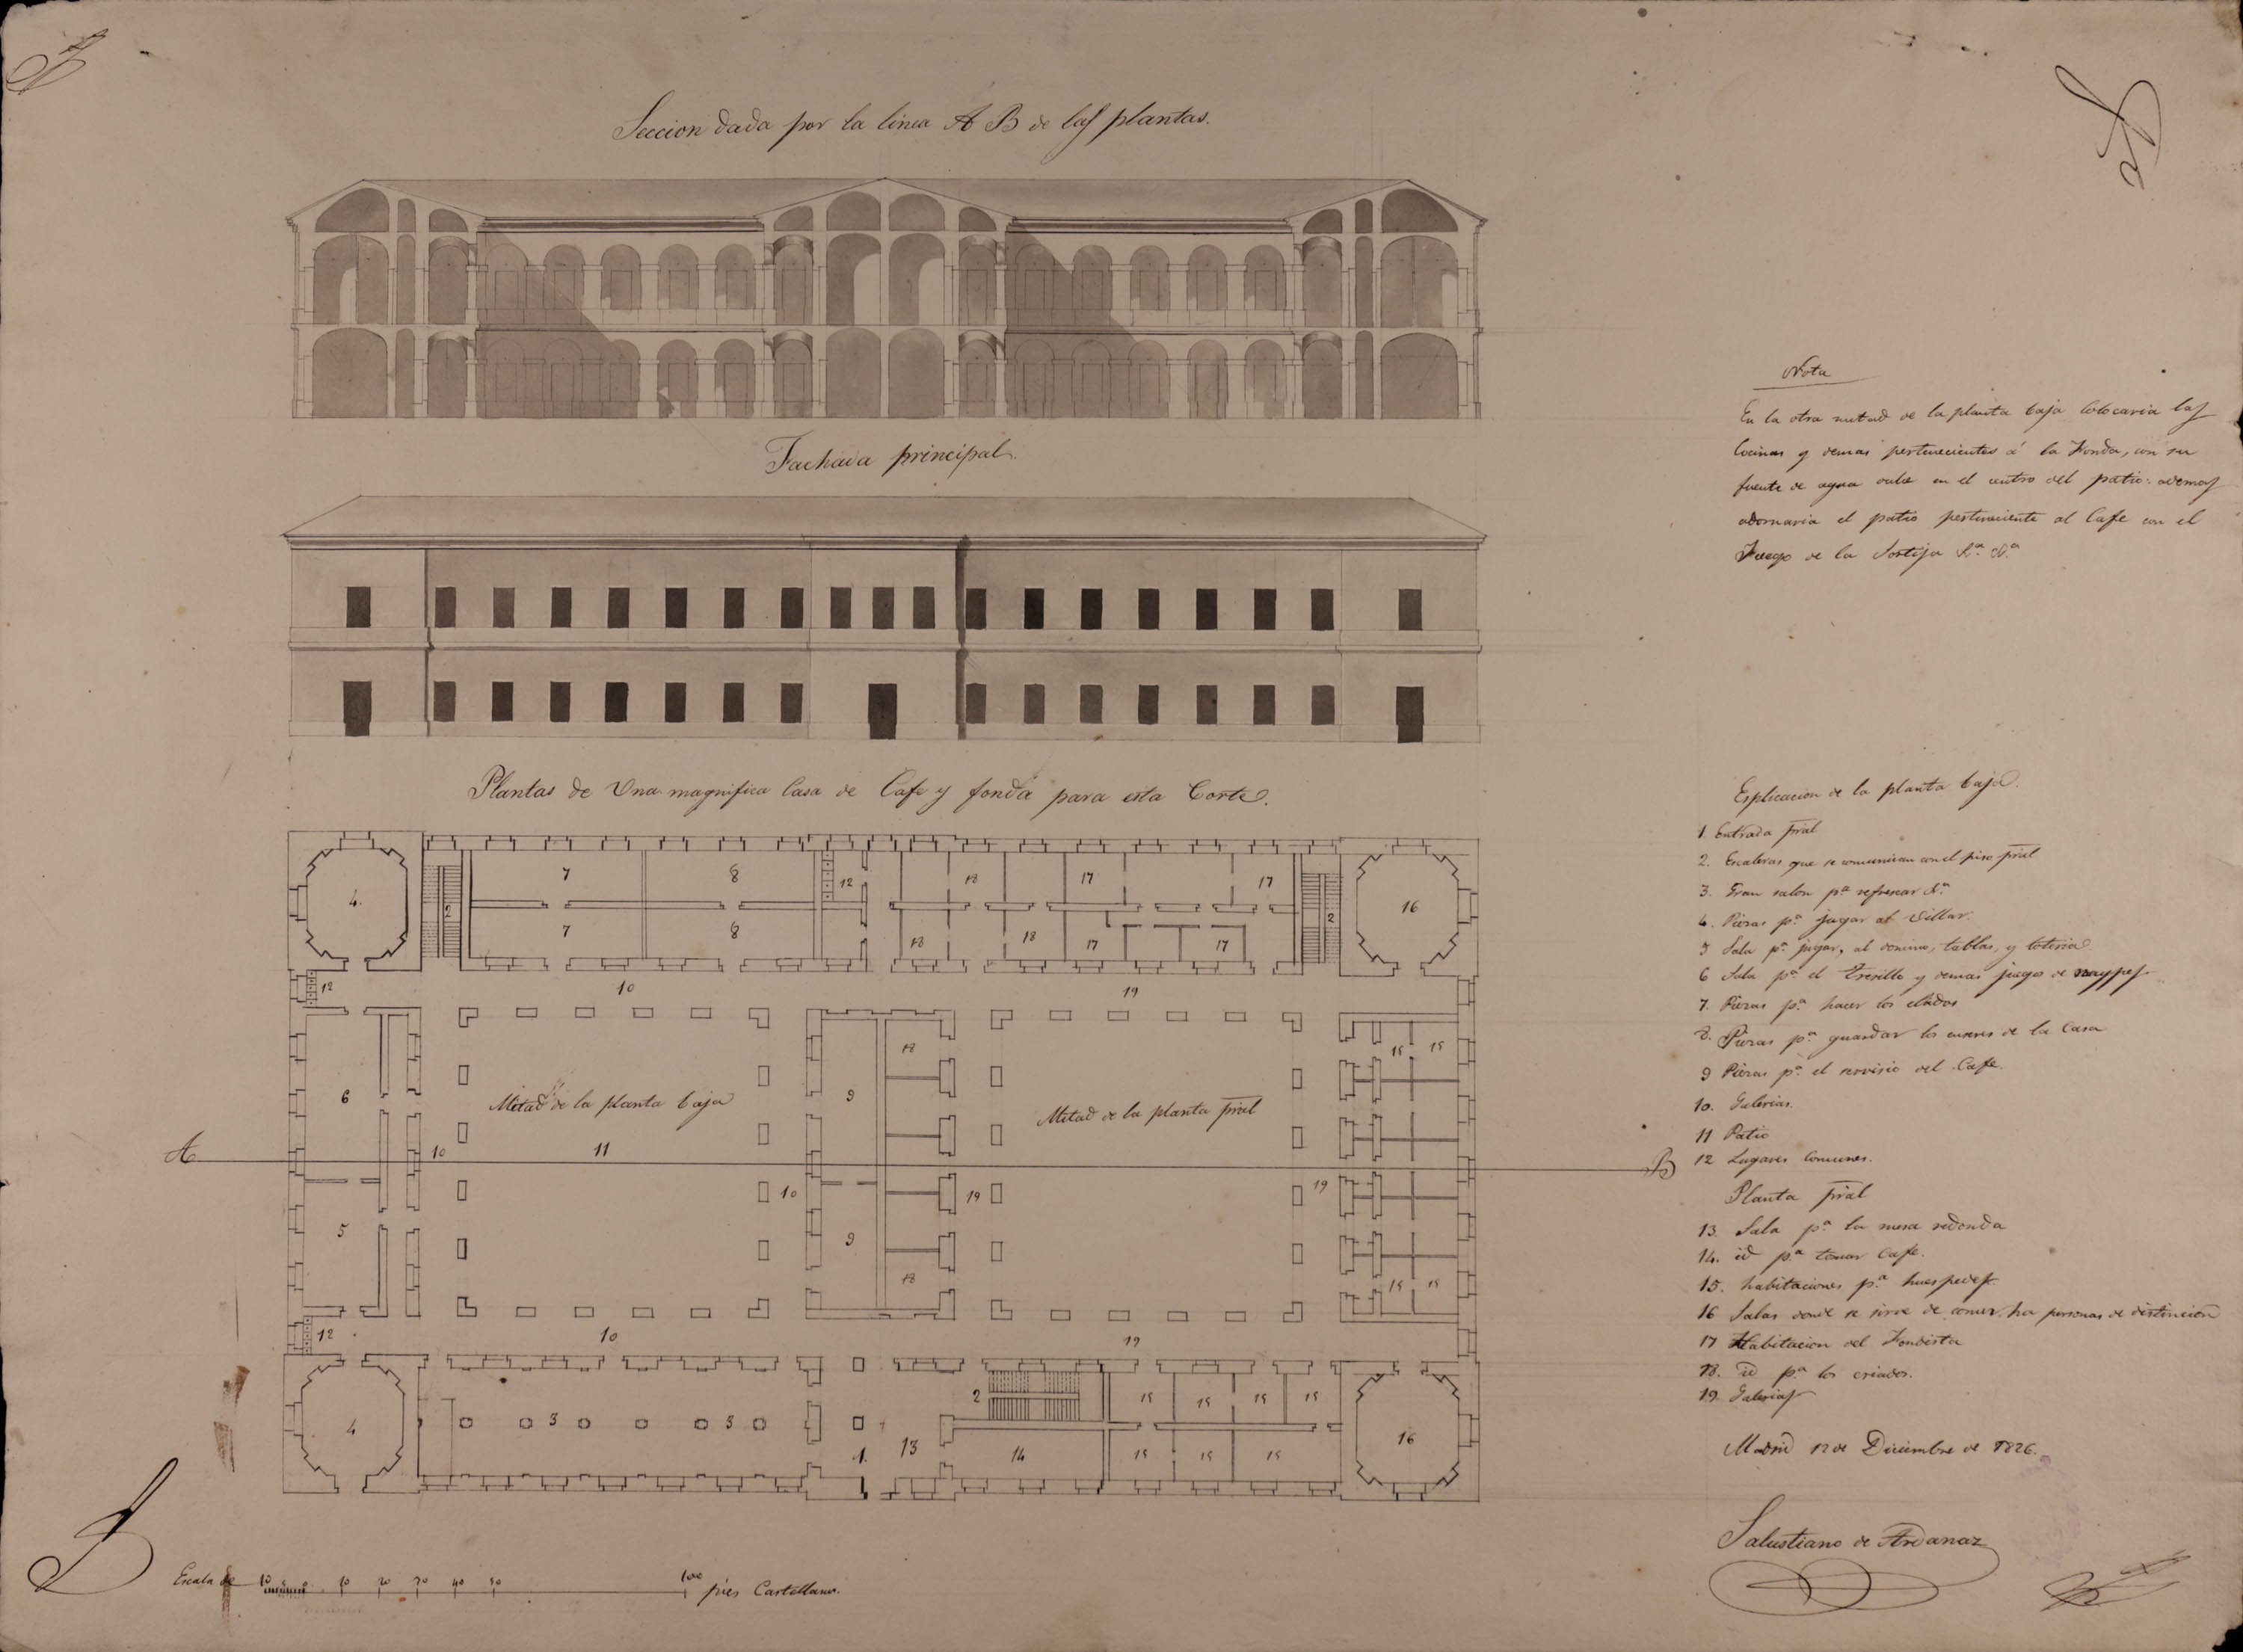 Seccion dada por la linea A B de las plantas.
Fachada principal.
Plantas de Una magnifica Casa de Cafe y fonda para esta Corte.
4.
2
7
8
12
18
17
17
2
16
7
8
18
18
17
17
12
10
19
6
Mitad de la planta baja
9
18
Mitad de la planta pral
15
15
A
10
11
B
5
10
9
19
19
18
15
15
12
10
19
4
3
3
2
15
15
15
15
1.
13
14
15
15
15
16
Escala de 10 5 0 10 20 30 40 50 100 pies Castellanos.
Nota
En la otra mitad de la planta baja colocaria las
Cocinas y demas pertenecientes á la Fonda, con su
fuente de agua dulce en el centro del patio: ademas
adornaria el patio perteneciente al Cafe con el
Juego de la Sortija
Esplicacion de la planta baja.
1. Entrada pral
2. Escaleras que se comunican con el piso pral
3. Gran salon pa. refrescar &a.
4. Piezas pa. jugar al Villar.
5 Sala pa. jugar, al domino, tablas, y loteria
6 Sala pa. el Tresillo y demas juegos de naypes
7. Piezas pa. hacer los elados
8. Piezas pa. guardar los enseres de la Casa
9 Piezas pa. el servisio del Cafe.
10. Galerias.
11 Patio
12 Lugares Comunes.
Planta pral
13. Sala pa. la mesa redonda
14. id pa. tomar Cafe.
15. habitaciones pa. huespedes.
16 Salas donde se sirve de comer ha personas de distincion
17 Habitacion del Fondista
18. id pa. los criados.
19. Galerias
Madrid 12 de Diciembre de 1826.
Salustiano de Ardanaz